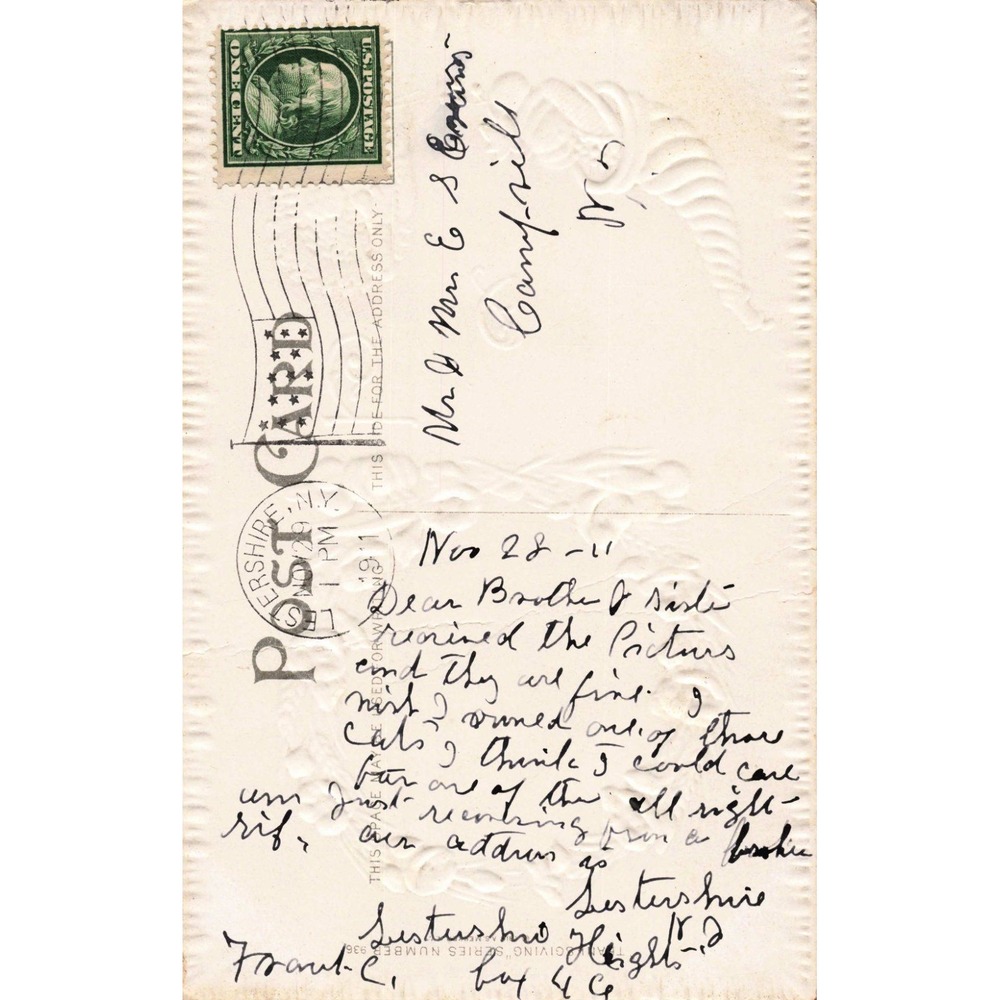 U.S. POSTAGE
ONE CENT
POST CARD
THIS SIDE FOR THE ADDRESS ONLY
THIS SPACE MAY BE USED FOR WRITING
LESTERSHIRE, N.Y.
NOV 29
1 PM
1911
Mr & Mrs E S
Campville
N Y
Nov 28 - 11
Dear Brother & Sister
recieved the Pictures
and they are fine. I
wish I owned one of those
Cubs I think I could care
for one of the all right
am Just recovering from a broken
rib, our address is
Lestershire
Lestershire Heights N Y
Frank C. box 46
THANKSGIVING SERIES NUMBER 936